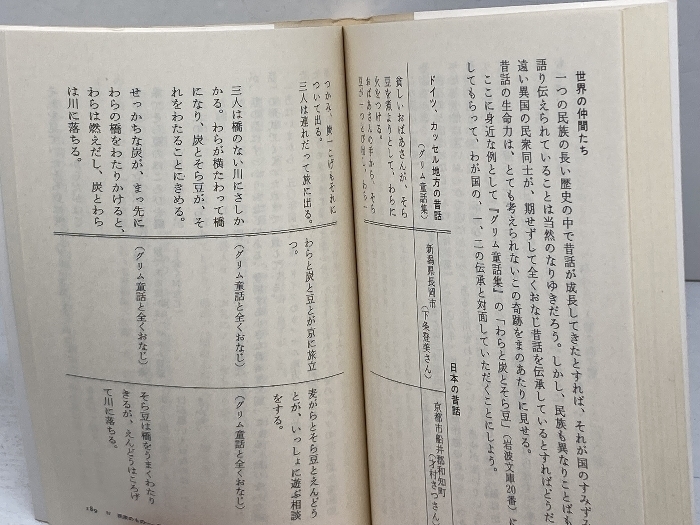 世界の仲間たち
一つの民族の長い歴史の中で昔話が成長してきたとすれば、それが国のすみずみ
語り伝えられていることは当然のなりゆきだろう。しかし、民族も異なりことばも
遠い異国の民衆同士が、期せずして全くおなじ昔話を伝承しているとすればどうだ
昔話の生命力は、とても考えられないこの奇跡をまのあたりに見せる。
ここに身近な例として『グリム童話集』の「わらと炭とそら豆」（岩波文庫20番）に
してもらって、わが国の、一、二の伝承と対面していただくことにしよう。
日本の昔話
ドイツ、カッセル地方の昔話
（グリム童話集）
新潟県長岡市
（下条登美さん）
京都市船井郡和知町
（才村さつさん）
貧しいおばあさんが、そら
豆を煮ようとして、わらに
火をつける。
おばあさんの手から、そら
豆が一つとび出し、わら一
つかみ、炭一こげもそれに
ついて出る。
三人は連れだって旅に出る。
わらと炭と豆とが京に旅立
つ。
麦がらとそら豆とえんどう
とが、いっしょに遊ぶ相談
をする。
三人は橋のない川にさしか
かる。わらが横たわって橋
になり、炭とそら豆が、そ
れをわたることにきめる。
（グリム童話と全くおなじ）
（グリム童話と全くおなじ）
せっかちな炭が、まっ先に
わらの橋をわたりかけると、
わらは燃えだし、炭とわら
は川に落ちる。
（グリム童話と全くおなじ）
そら豆は橋をうまくわたり
きるが、えんどうはころげ
て川に落ちる。
189